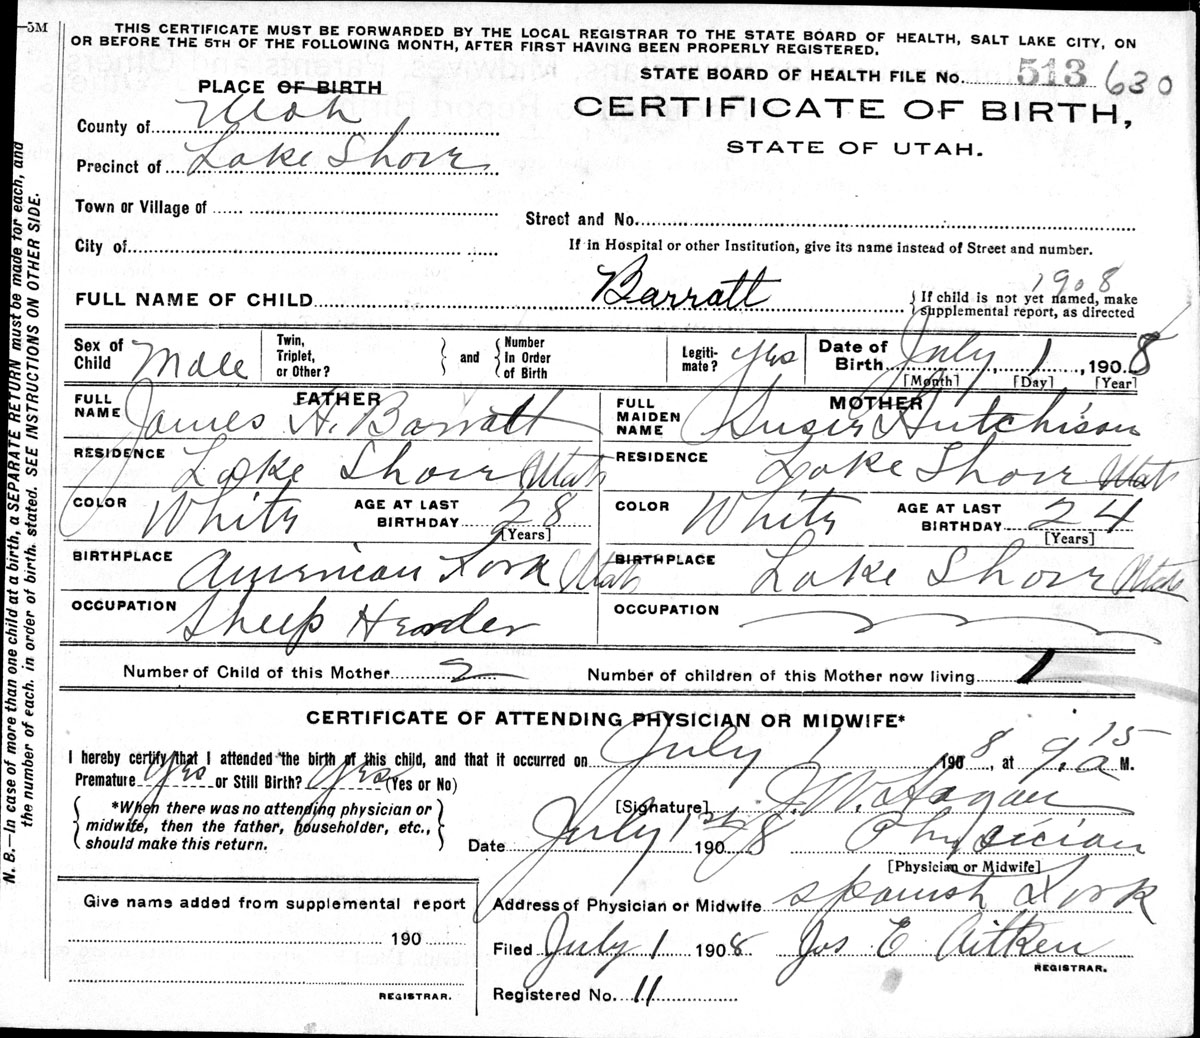 5M
THIS CERTIFICATE MUST BE FORWARDED BY THE LOCAL REGISTRAR TO THE STATE BOARD OF HEALTH, SALT LAKE CITY, ON
OR BEFORE THE 5TH OF THE FOLLOWING MONTH, AFTER FIRST HAVING BEEN PROPERLY REGISTERED.
N. B.—In case of more than one child at a birth, a SEPARATE RETURN must be made for each, and
the number of each, in order of birth, stated. SEE INSTRUCTIONS ON OTHER SIDE.
STATE BOARD OF HEALTH FILE No. 513 630
PLACE OF BIRTH
CERTIFICATE OF BIRTH,
STATE OF UTAH.
County of Utah
Precinct of Lake Shore
Town or Village of
Street and No.
City of
If in Hospital or other Institution, give its name instead of Street and number.
1908
FULL NAME OF CHILD Barratt { If child is not yet named, make
supplemental report, as directed
Sex of Child Male Twin, Triplet, or Other? } and { Number In Order of Birth Legiti-mate? yes Date of Birth July 1, 1908
[Month] [Day] [Year]
FATHER MOTHER
FULL NAME James H. Barratt FULL MAIDEN NAME Susie Hutchison
RESIDENCE Lake Shore Utah RESIDENCE Lake Shore Utah
COLOR White AGE AT LAST BIRTHDAY 28 [Years] COLOR White AGE AT LAST BIRTHDAY 24 [Years]
BIRTHPLACE American Fork Utah BIRTHPLACE Lake Shore Utah
OCCUPATION Sheep Header OCCUPATION
Number of Child of this Mother 2 Number of children of this Mother now living 1
CERTIFICATE OF ATTENDING PHYSICIAN OR MIDWIFE*
I hereby certify that I attended the birth of this child, and that it occurred on July 1, 1908, at 9.15 a M.
Premature yes or Still Birth? yes (Yes or No)
*When there was no attending physician or
midwife, then the father, householder, etc.,
should make this return.
[Signature] J. W. Hagan
Date July 1st 1908 Physician
[Physician or Midwife]
Give name added from supplemental report
190
REGISTRAR.
Address of Physician or Midwife Spanish Fork
Filed July 1 1908 Jos E Aitken
REGISTRAR.
Registered No. 11